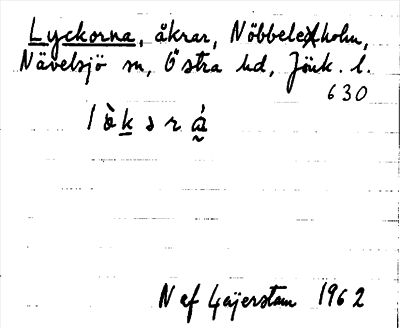 Lyckorna, åkrar, Nöbbeleholm,
Nävelsjö sn, Östra hd, Jönk. l.
630
Nef Gajerstam 1962